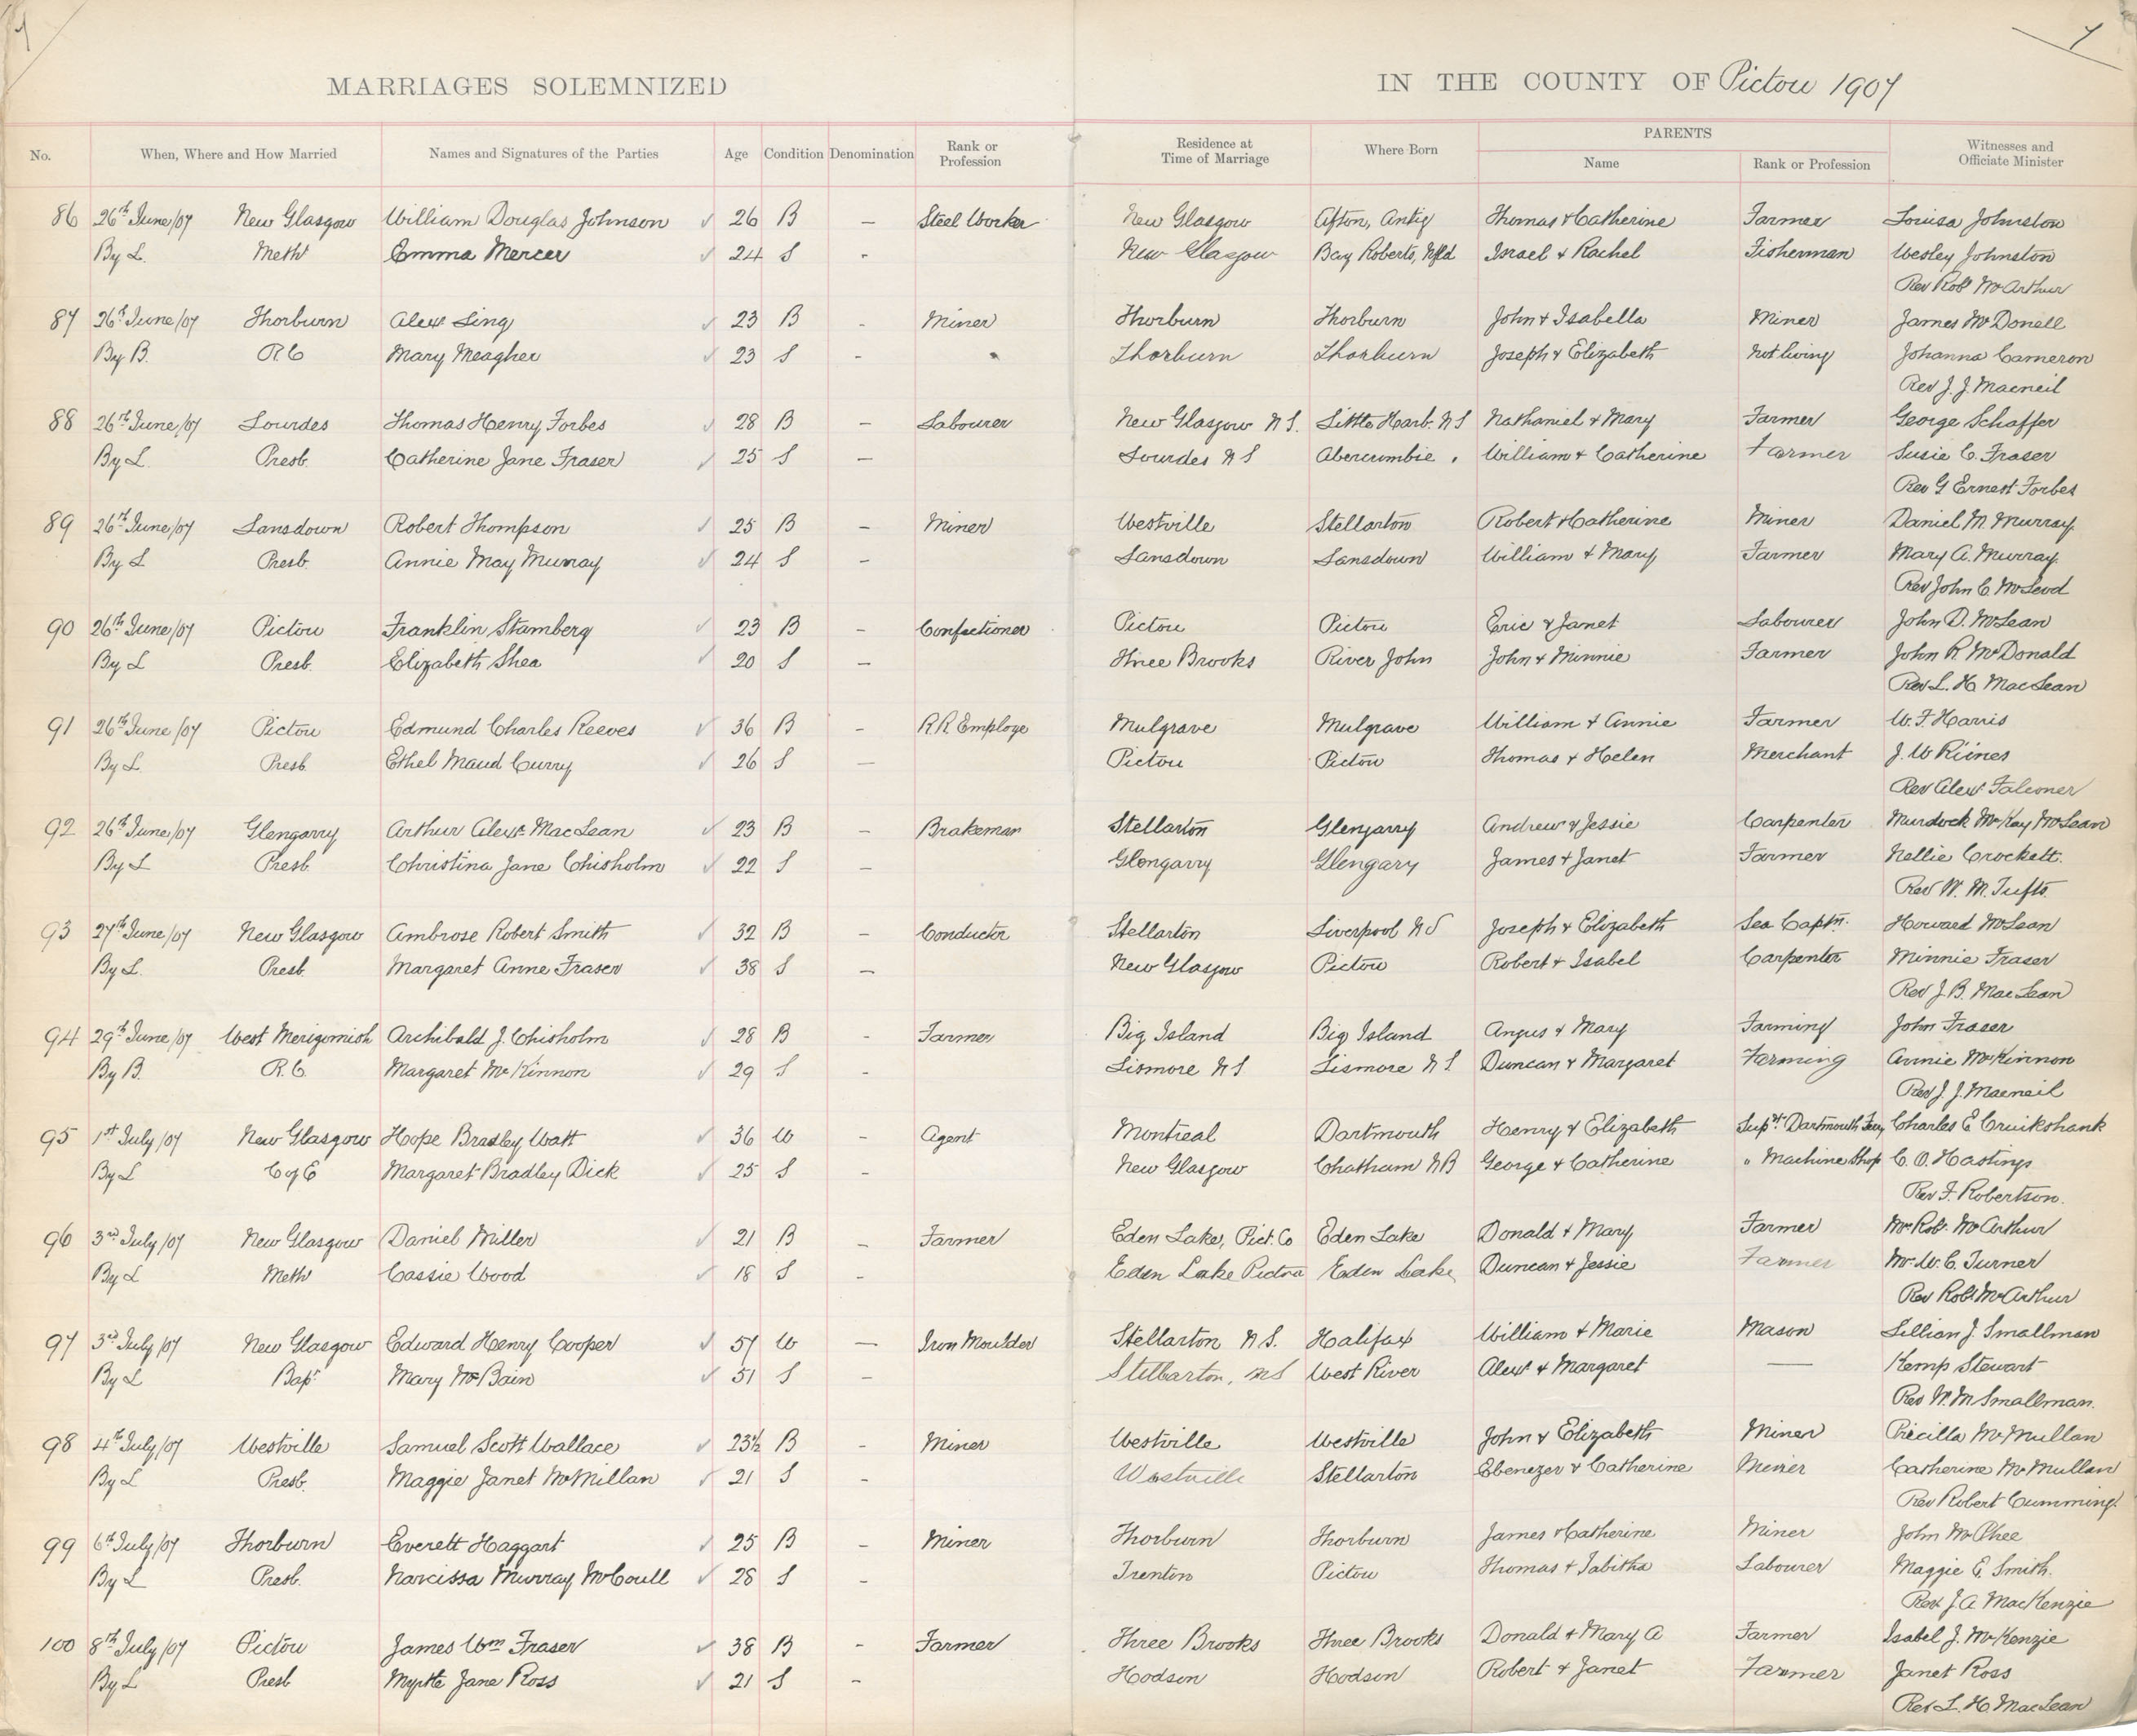 7 7
MARRIAGES SOLEMNIZED IN THE COUNTY OF Pictou 1907
No. When, Where and How Married Names and Signatures of the Parties Age Condition Denomination Rank or Profession Residence at Time of Marriage Where Born PARENTS Name Rank or Profession Witnesses and Officiate Minister
86 26th June/07 New Glasgow William Douglas Johnson 26 B – Steel Worker New Glasgow Afton, Antig Thomas & Catherine Farmer Louisa Johnston
By L. Meth Emma Mercer 24 S - New Glasgow Bay Roberts, Nfld Israel & Rachel Fisherman Wesley Johnston
Rev Robt McArthur
87 26th June/07 Thorburn Alexr Ling 23 B - Miner Thorburn Thorburn John & Isabella Miner James McDonell
By B. R.C Mary Meagher 23 S - Thorburn Thorburn Joseph & Elizabeth Not living Johanna Cameron
Rev J. J. Macneil
88 26th June/07 Lourdes Thomas Henry Forbes 28 B – Labourer New Glasgow N S. Little Harb. N S Nathaniel & Mary Farmer George Schaffer
By L. Presb. Catherine Jane Fraser 25 S – Lourdes N S Abercrombie William & Catherine Farmer Susie C. Fraser
Rev G Ernest Forbes
89 26th June/07 Lansdown Robert Thompson 25 B – Miner Westville Stellarton Robert & Catherine Miner Daniel M. Murray
By L Presb. Annie May Murray 24 S – Lansdown Lansdown William & Mary Farmer Mary A. Murray
Rev John C. McLeod
90 26th June/07 Pictou Franklin Stamberg 23 B – Confectioner Pictou Pictou Eric & Janet Labourer John D. McLean
By L Presb. Elizabeth Shea 20 S – Three Brooks River John John & Minnie Farmer John R. McDonald
Rev L. H. MacLean
91 26th June/07 Pictou Edmund Charles Reeves 36 B – R R Employe Mulgrave Mulgrave William & Annie Farmer W. F. Harris
By L. Presb. Ethel Maud Curry 26 S – Pictou Pictou Thomas & Helen Merchant J. W
Rev Alexr Falconer
92 26th June/07 Glengarry Arthur Alexr. MacLean 23 B – Brakeman Stellarton Glengarry Andrew & Jessie Carpenter Murdock McKay McLean
By L Presb. Christina Jane Chisholm 22 S – Glengarry Glengary James & Janet Farmer Nellie Crockett.
Rev W. M. Tufts.
93 27th June/07 New Glasgow Ambrose Robert Smith 32 B – Conductor Stellarton Liverpool N S Joseph & Elizabeth Sea Captn. Howard McLean
By L. Presb. Margaret Anne Fraser 38 S – New Glasgow Pictou Robert & Isabel Carpenter Minnie Fraser
Rev J. B. MacLean
94 29th June/07 West Merigomish Archibald J. Chisholm 28 B - Farmer Big Island Big Island Angus & Mary Farming John Fraser
By B. R.C. Margaret McKinnon 29 S - Lismore N S Lismore N S. Duncan & Margaret Farming Annie McKinnon
Rev J. J. Macneil
95 1st July/07 New Glasgow Hope Bradley Watt 36 W - Agent Montreal Dartmouth Henry & Elizabeth Supt. Dartmouth Ferry Charles E Cruikshank
By L C of E Margaret Bradley Dick 25 S - New Glasgow Chatham N B George & Catherine " Machine Shop C. O. Hastings
Rev F. Robertson.
96 3rd July/07 New Glasgow Daniel Miller 21 B – Farmer Eden Lake, Pict. Co Eden Lake Donald & Mary Farmer Mr Robt. McArthur
By L Meth Cassie Wood 18 S - Eden Lake Pictou Eden Lake Duncan & Jessie Farmer Mr. W. C. Turner
Rev Robt. McArthur
97 3rd July/07 New Glasgow Edward Henry Cooper 57 W — Iron Moulder Stellarton N S. Halifax William & Marie Mason Lillian J. Smallman
By L Bapt Mary McBain 51 S – Stellarton, NS West River Alexr & Margaret — Kemp Stewart
Rev W. M Smallman.
98 4th July/07 Westville Samuel Scott Wallace 23½ B - Miner Westville Westville John & Elizabeth Miner Pricilla McMullan
By L Presb. Maggie Janet McMillan 21 S - Westville Stellarton Ebenezer & Catherine Miner Catherine McMullan
Rev Robert Cumming.
99 6th July/07 Thorburn Everett Haggart 25 B – Miner Thorburn Thorburn James & Catherine Miner John McPhee
By L Presb. Narcissa Murray McCoull 28 S - Trenton Pictou Thomas & Tabitha Labourer Maggie E. Smith.
Rev. J. A. MacKenzie
100 8th July/07 Pictou James Wm Fraser 38 B - Farmer Three Brooks Three Brooks Donald & Mary A Farmer Isabel J. McKenzie
By L Presb Myrtle Jane Ross 21 S - Hodson Hodson Robert & Janet Farmer Janet Ross
Rev L. H. MacLean